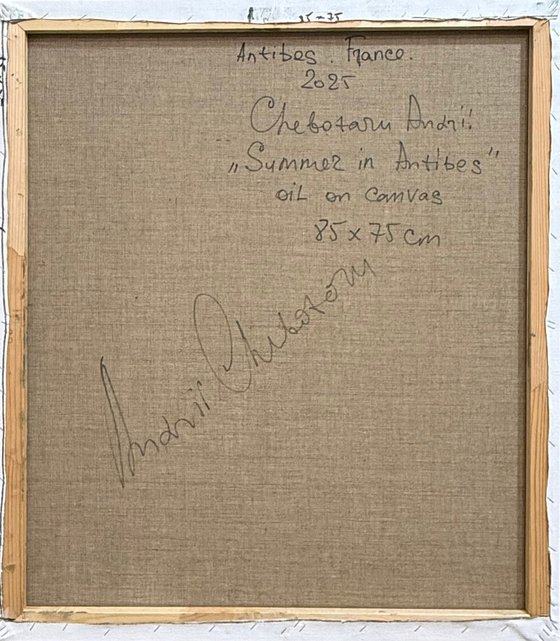 Antibes. France.
2025
Chebotaru Andrii
„Summer in Antibes"
oil on canvas
85 x 75 cm
Andrii Chebotaru